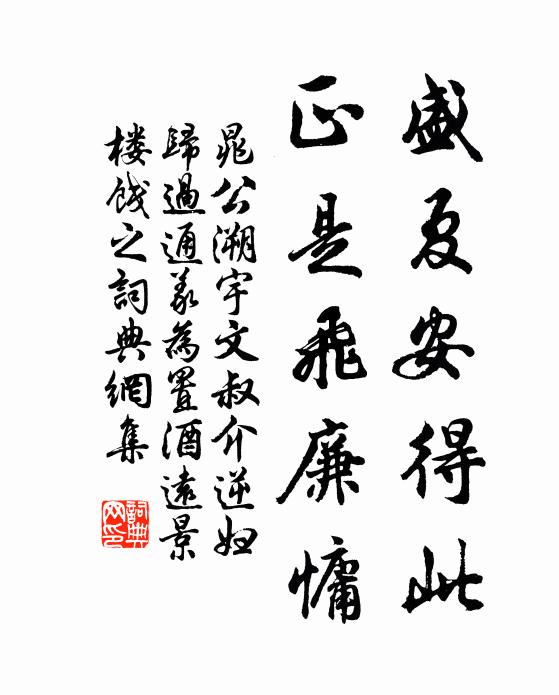 盛夏安得此
正是飛廉慵
晁公溯宇文叔介逆婦
歸過通義為置酒遠景
楼餞之詞典網集
詞典網印